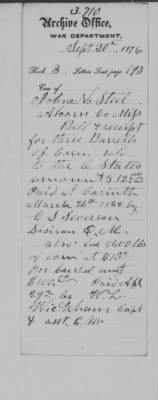 3.710
Archive Office,
WAR DEPARTMENT,
Sept 30th, 1876
Book 3 Letters Sent, page 193
Case of
John N. Steel
Alcorn Co Miss
Bill & receipt
for three Barrels
of Corn, sold
to the C. States
amount $12.00
Paid at Corinth
March 26th 1862 by
C S Severson
Division Q.M.
also for 5600 lbs
of corn at $1.00
Per bushel amt
$100.00 Paid Apl
29th by W. L.
Wickham Capt
& asst. Q.M.